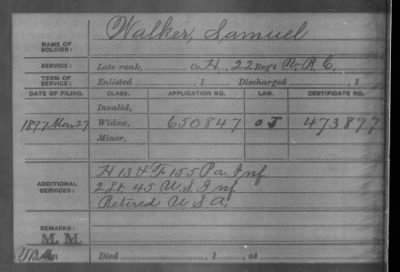 NAME OF SOLDIER: Walker, Samuel
SERVICE: Late rank, Co. H, 22 Reg't V. R. C.
TERM OF SERVICE: Enlisted , 1 Discharged , 1
DATE OF FILING. CLASS. APPLICATION NO. LAW. CERTIFICATE NO.
Invalid,
1897 Mar 27 Widow, 650847 O J 473877
Minor,
ADDITIONAL SERVICES: H 13 & F 155 Pa Inf
2 Lt 45 U S Inf
Retired U S A.
REMARKS:
M. M.
Died , 1 , at